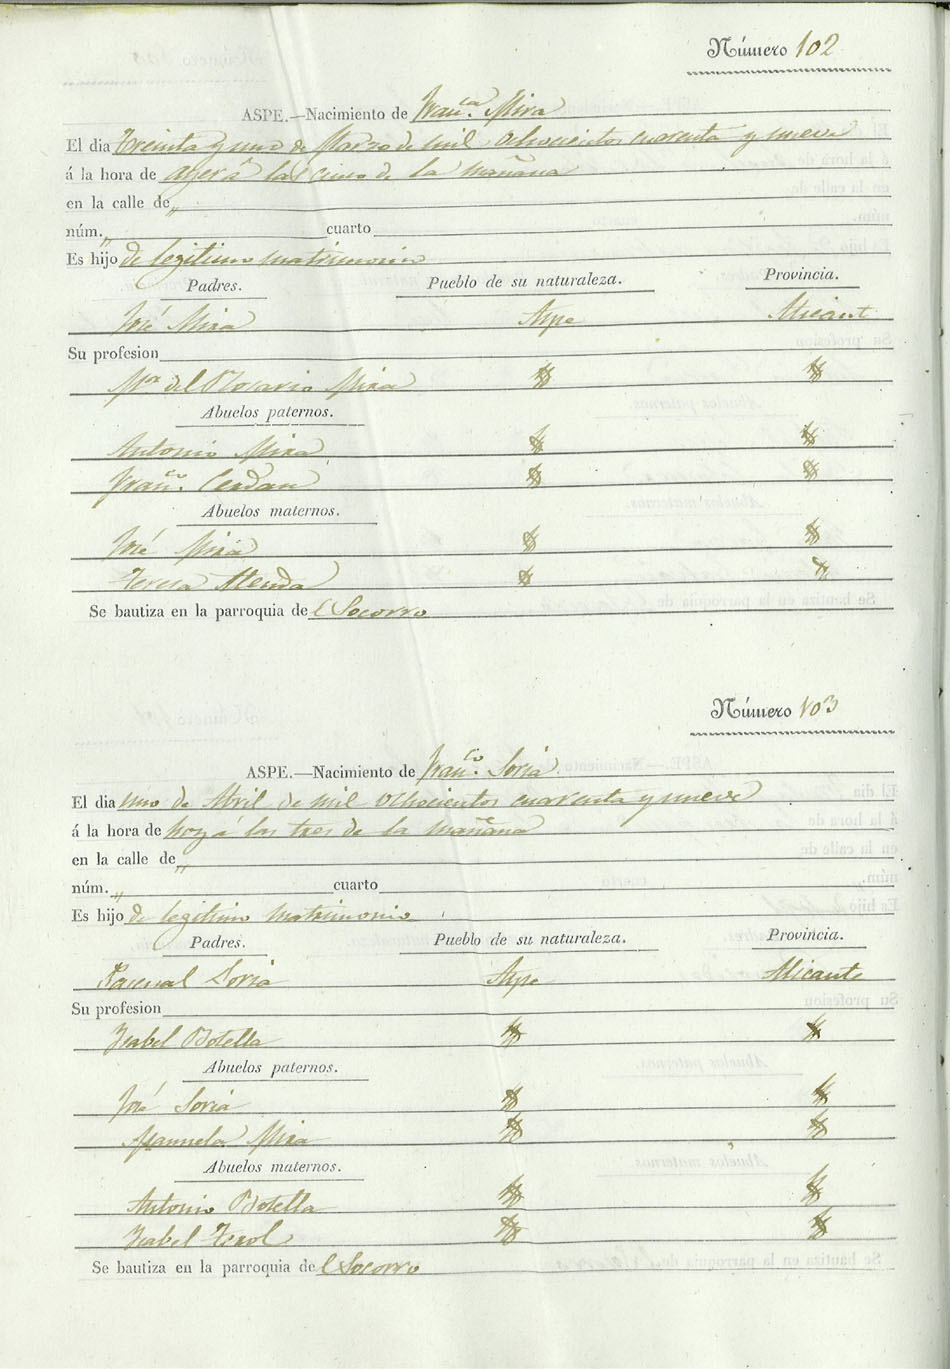 Número 102
ASPE.—Nacimiento de Fran.ca Mira
El dia treinta y uno de Marzo de mil ochocientos cuarenta y nueve
á la hora de ayer á las cinco de la mañana
en la calle de „
núm. „ cuarto
Es hijo de legitimo matrimonio
Padres. Pueblo de su naturaleza. Provincia.
José Mira Aspe Alicant
Su profesion
M.a del Rosario Mira
Abuelos paternos.
Antonio Mira
Fran.ca Cerdan
Abuelos maternos.
José Mira
Teresa
Se bautiza en la parroquia de el Socorro
Número 103
ASPE.—Nacimiento de Fran.co Soria
El dia uno de Abril de mil ochocientos cuarenta y nueve
á la hora de hoy á las tres de la mañana
en la calle de „
núm. „ cuarto
Es hijo de legitimo matrimonio
Padres. Pueblo de su naturaleza. Provincia.
Pascual Soria Aspe Alicante
Su profesion
Isabel Botella
Abuelos paternos.
José Soria
Manuela Mira
Abuelos maternos.
Antonio Botella
Isabel Terol
Se bautiza en la parroquia de el Socorro